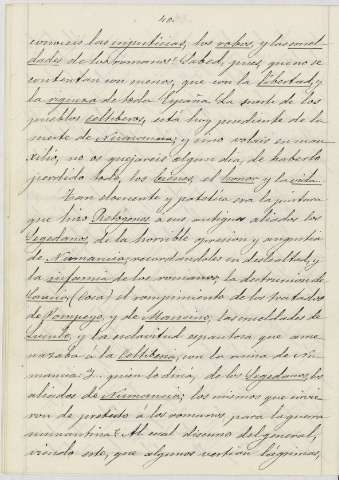 40.
conoceis las injusticias, los robos, y las cruel-
dades de los romanos? Sabed, pues, que no se
contentan con menos, que con la libertad, y
la riqueza de toda España. La suerte de los
pueblos celtiberos, esta hoy pendiente de la
suerte de Numancia; y sino volais en su au-
xilio, no os quejareis algun dia, de haberlo
perdido todo, los bienes, el honor y la vida.
Tan elocuente y patetica era la pintura
que hizo Retogenes a sus antiguos aliados los
Segedanos, de la horrible opresion y angustia
de Numancia, recordandoles su deslealtad, y
la infamia de los romanos, la destruccion de
(Coca) el rompimiento de los tratados
de Pompeyo, y de Mancino, las crueldades de
Lúculo, y la esclavitud espantosa que ame-
nazaba á la Celtiberia, con la ruina de Nu-
mancia. Y quien lo diria, de los Segedanos, los
aliados de Numancia, los mismos que sirvie-
ron de pretesto a los romanos, para la guerra
numantina? Al cual discurso del general,
viendo este, que algunos vertian lágrimas,